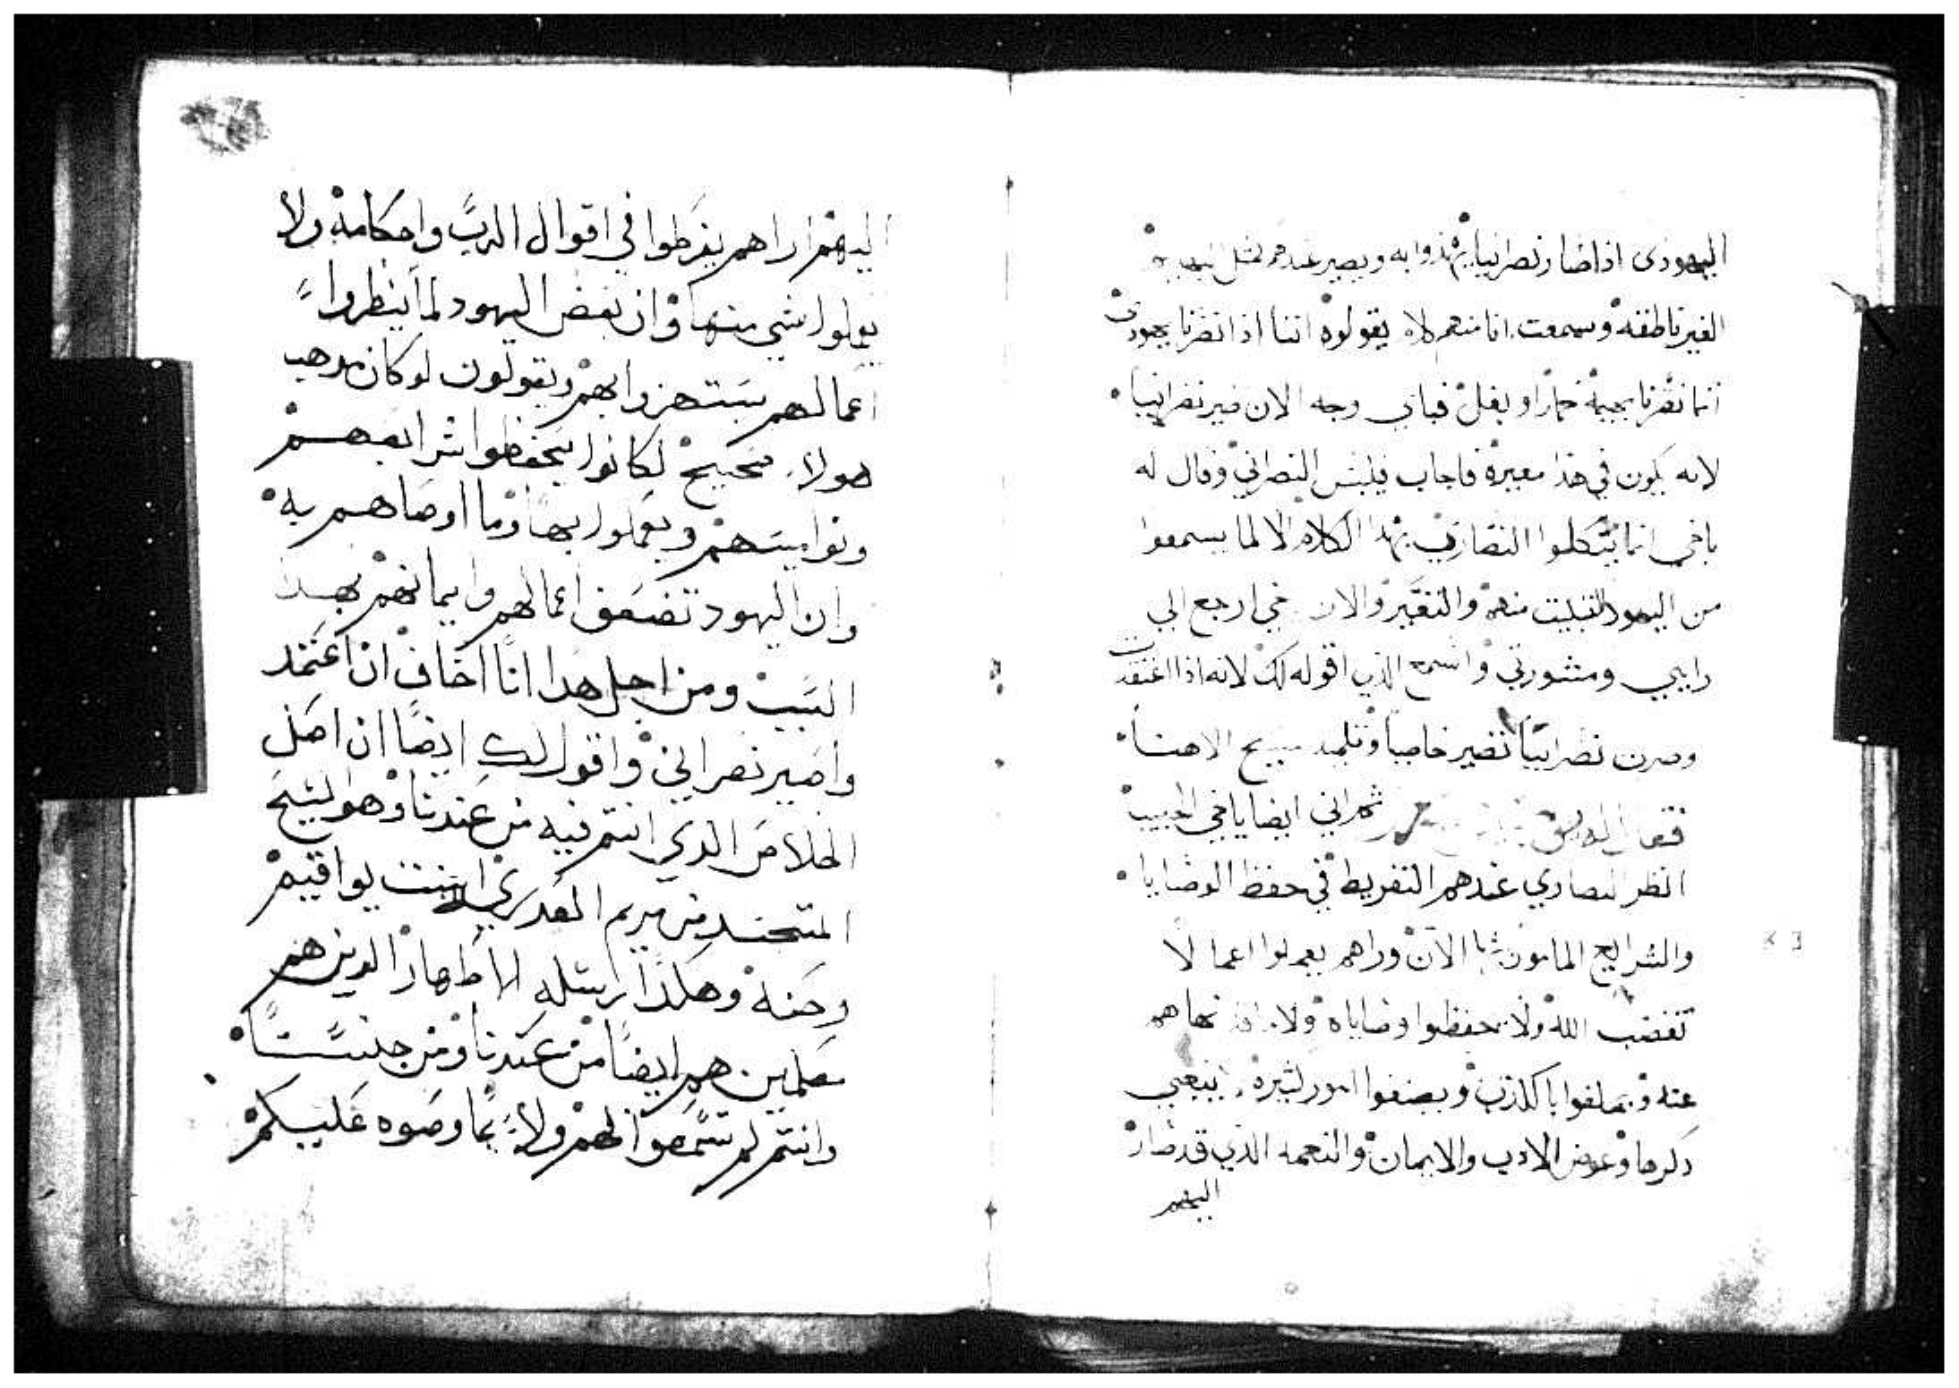 اليهودى اذا صار نصرانيا يهزوا به ويصير عندهم مثل
الغير ناطقه وسمعت انا منهم لاه يقولوه اننا اذا نصرنا يهودى
اننا نصرنا بهيمة حمارا او بغل فباي وجه الان نصير نصرانيا
لانه يكون في هذا معيرة فاجاب فيلبس النصراني وقال له
ياخي انما يتكلموا النصارى بهذا الكلام الا لما يسمعوا
من اليهود منهم والتغير والان ارجع الي
رايي ومشورتي واسمع الذي اقوله لك لانه اذا اعتقدت
وصرت نصرانيا تصير خاصيا وتلميد مسيح الاهنا
فقال ايضا ياخي الحبيب
انظر النصاري عندهم التفريط في حفظ الوصايا
والشرايع المامون بها الان وراهم يعملوا اعمالا
تغضب الله ولا يحفظوا وصاياه ولا نهاهم
عنه ويحلفوا باكلذب ويصنعوا امور كثيرة ينبغي
دكرها وعوض الادب والايمان والنعمه الذي قد صار
اليهم
اليهم اراهم يفرطوا في اقوال الرب واحكامه ولا
يعملوا بشي منها وان بعض اليهود لما ينظروا
اعمالهم يستهزوا بهم ويقولون لو كان مدهب
هولاء صحيح لكانوا يحفظوا شرايعهم
ونواميسهم ويعملوا بها وما اوصاهم به
وان اليهود تضعف اعمالهم وايمانهم بهدا
السبب ومن اجل هدا انا اخاف ان اعتمد
واصير نصراني واقول لك ايضا ان اصل
الخلاص الدي انتم فيه من عندنا وهو ليسيح
المتجسد من مريم العدري ابنت يواقيم
وحنة وهكدا رسله الاطهار الدين هم
معلمين هم ايضا من عندنا ومن جنسنا
وانتم لم تسمعوا لهم ولا بما وصوه عليكم